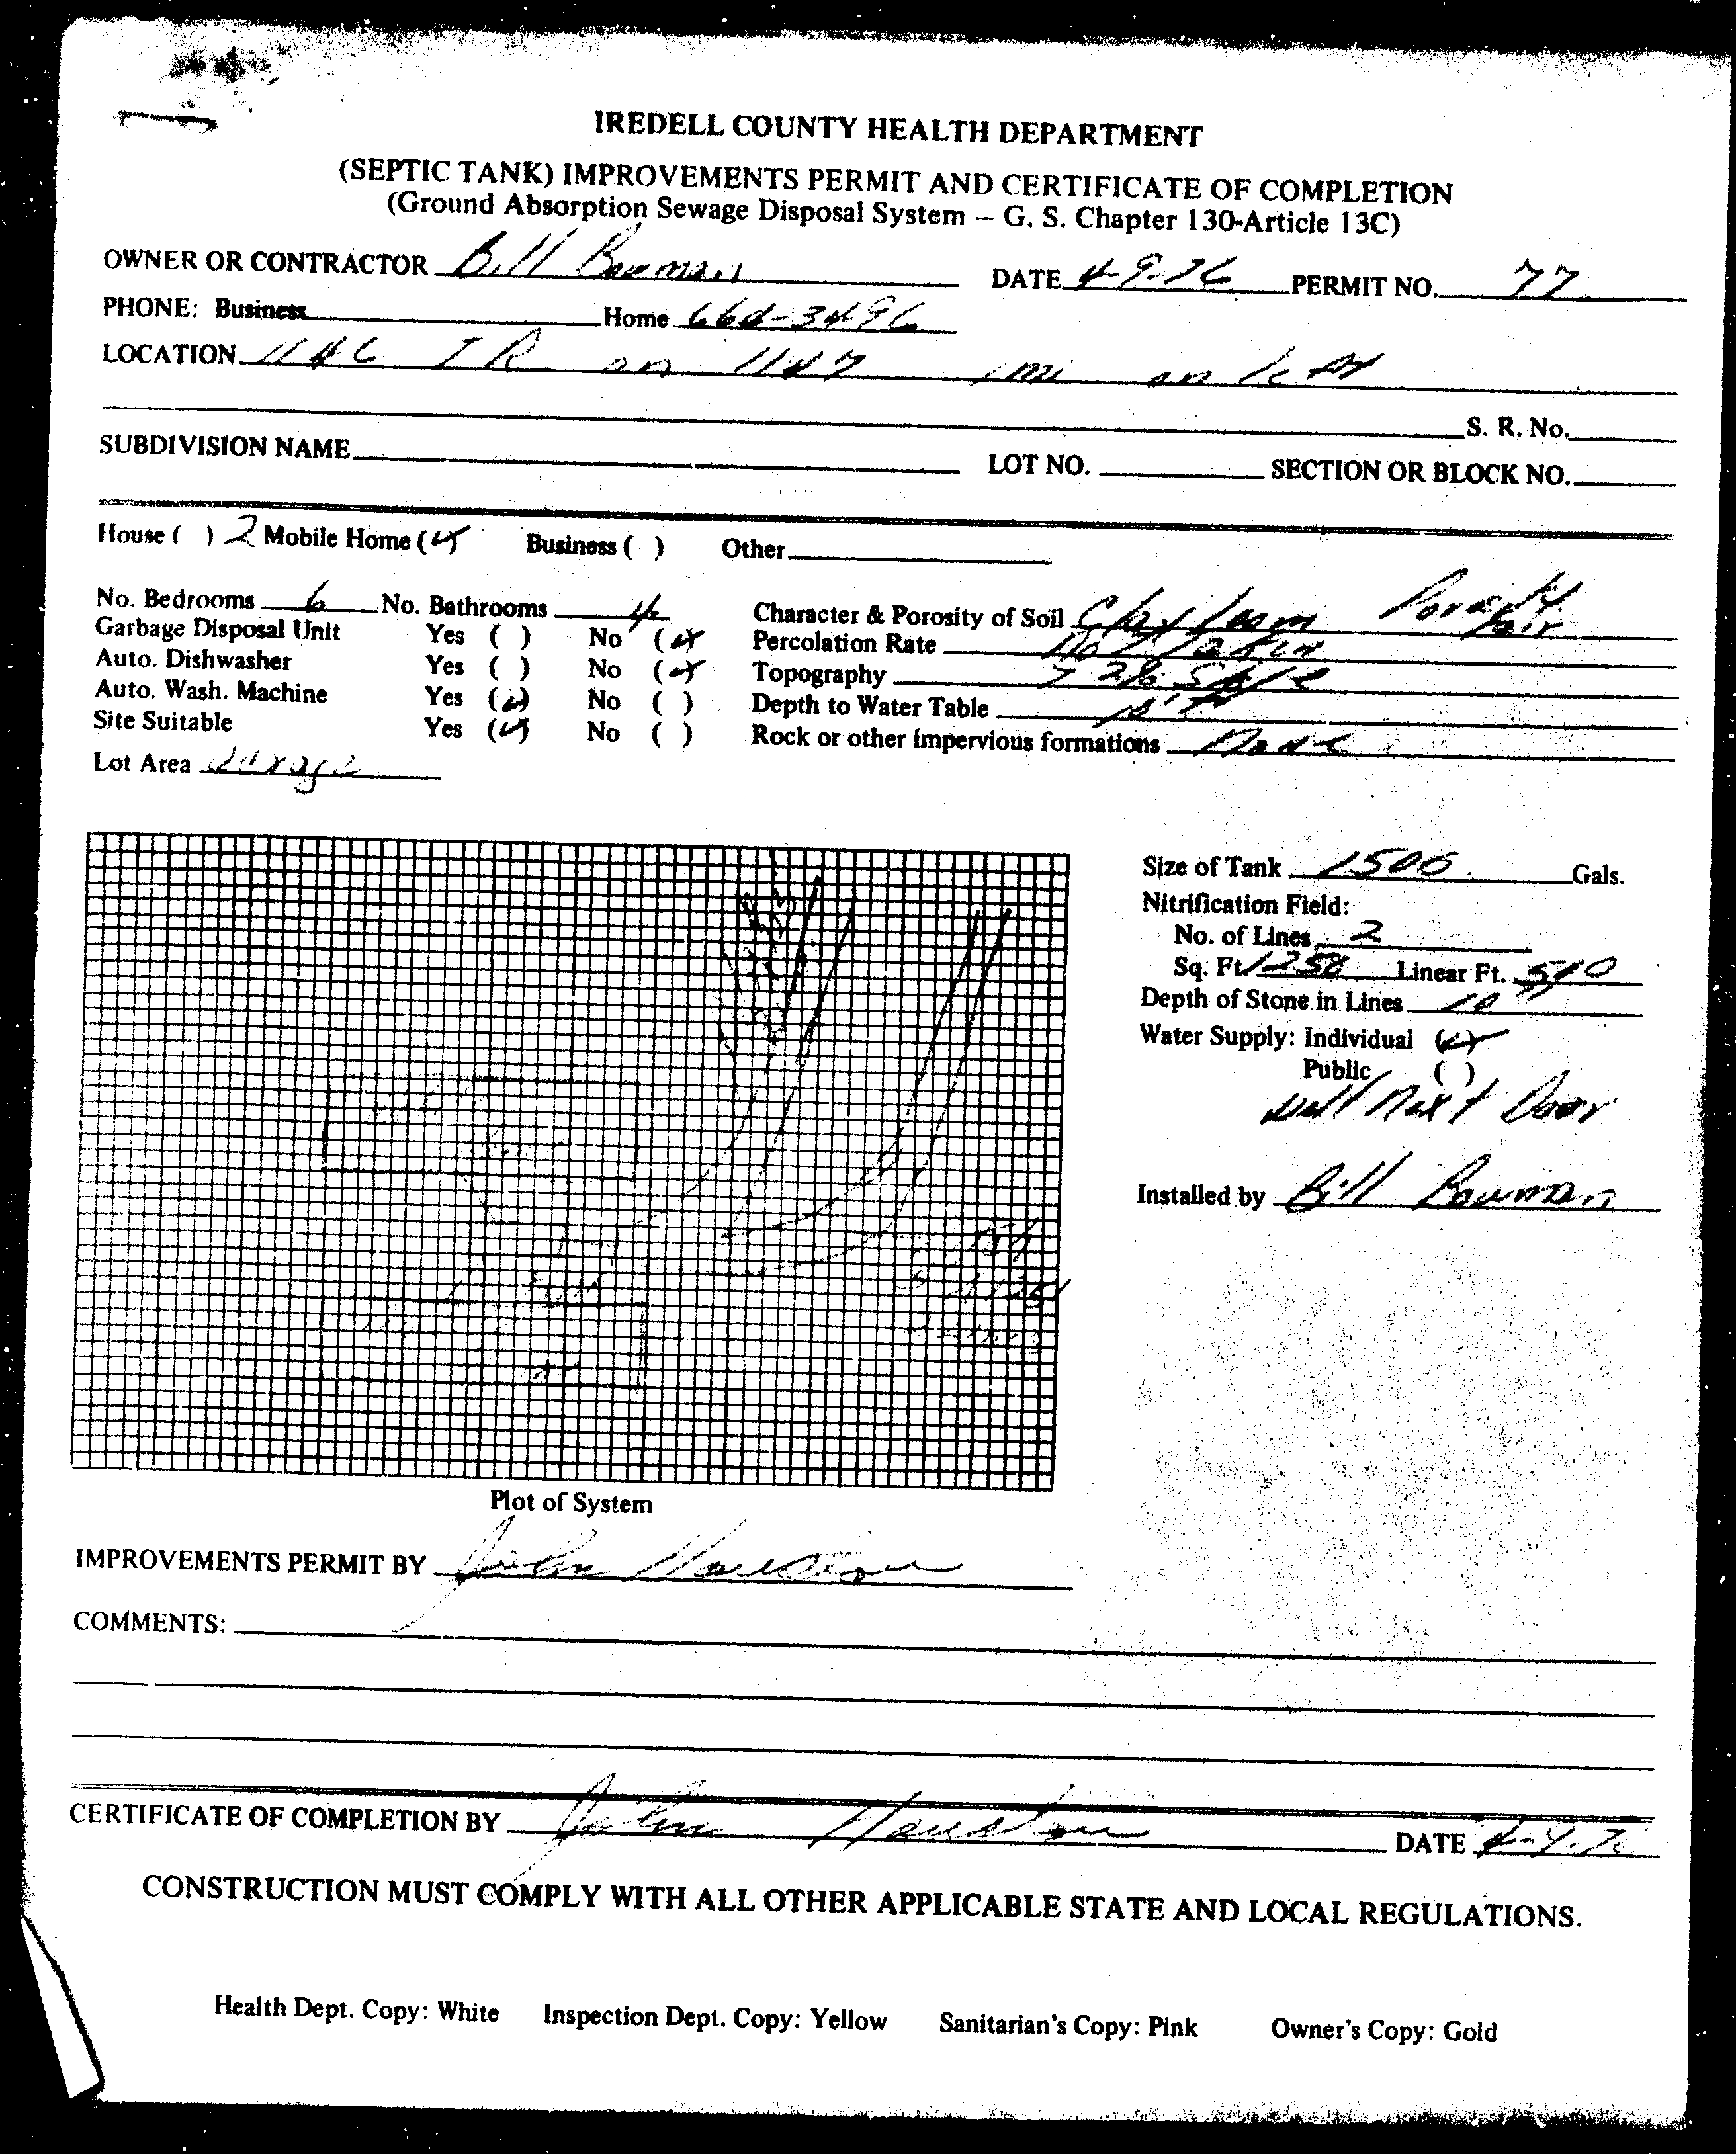 IREDELL COUNTY HEALTH DEPARTMENT
(SEPTIC TANK) IMPROVEMENTS PERMIT AND CERTIFICATE OF COMPLETION
(Ground Absorption Sewage Disposal System – G. S. Chapter 130-Article 13C)
OWNER OR CONTRACTOR Bill Bauman DATE 4-9-76 PERMIT NO. 77
PHONE: Business Home 664-3496
LOCATION 1146 TR on 1147 1 mi on left
S. R. No.
SUBDIVISION NAME LOT NO. SECTION OR BLOCK NO.
House ( ) 2 Mobile Home (✓) Business ( ) Other
No. Bedrooms 6 No. Bathrooms 4 Character & Porosity of Soil Clay loam Porosity fair
Garbage Disposal Unit Yes ( ) No (✓) Percolation Rate Not Taken
Auto. Dishwasher Yes ( ) No (✓) Topography 2% Slope
Auto. Wash. Machine Yes (✓) No ( ) Depth to Water Table
Site Suitable Yes (✓) No ( ) Rock or other impervious formations None
Lot Area
Size of Tank 1500 Gals.
Nitrification Field:
No. of Lines 2
Sq. Ft. Linear Ft.
Depth of Stone in Lines 10
Water Supply: Individual (✓)
Public ( )
Well Next Door
Installed by Bill Bauman
Plot of System
IMPROVEMENTS PERMIT BY John
COMMENTS:
CERTIFICATE OF COMPLETION BY John DATE
CONSTRUCTION MUST COMPLY WITH ALL OTHER APPLICABLE STATE AND LOCAL REGULATIONS.
Health Dept. Copy: White Inspection Dept. Copy: Yellow Sanitarian's Copy: Pink Owner's Copy: Gold